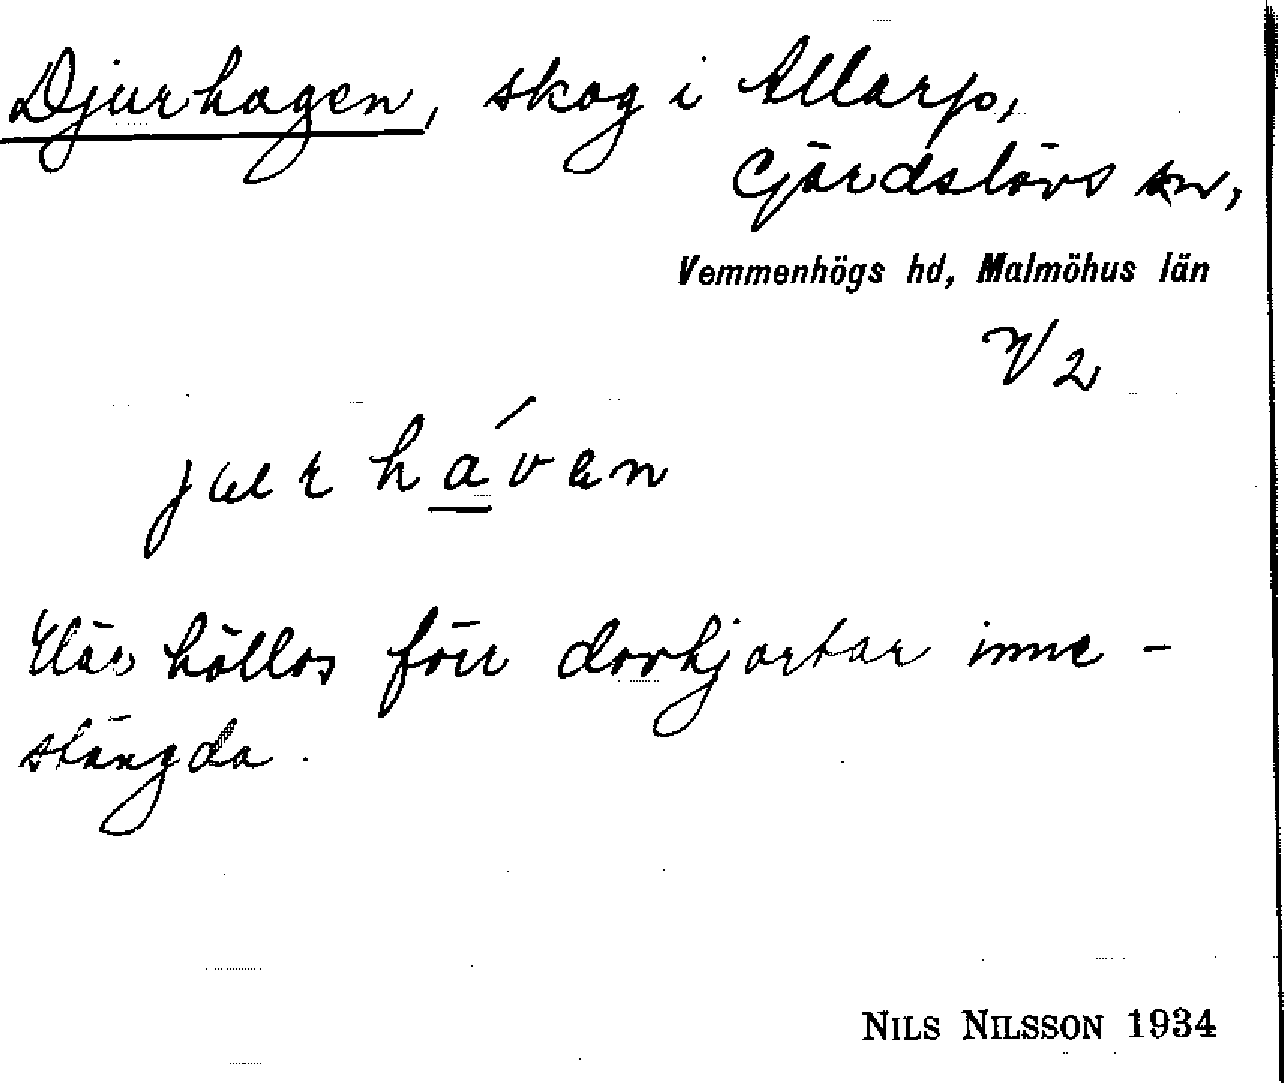 Djurhagen, skog i Allarp,
Gärdslövs sn,
Vemmenhögs hd, Malmöhus län
V/2
jurháven
Här höllos förr dovhjortar inne-
stängda.
NILS NILSSON 1934